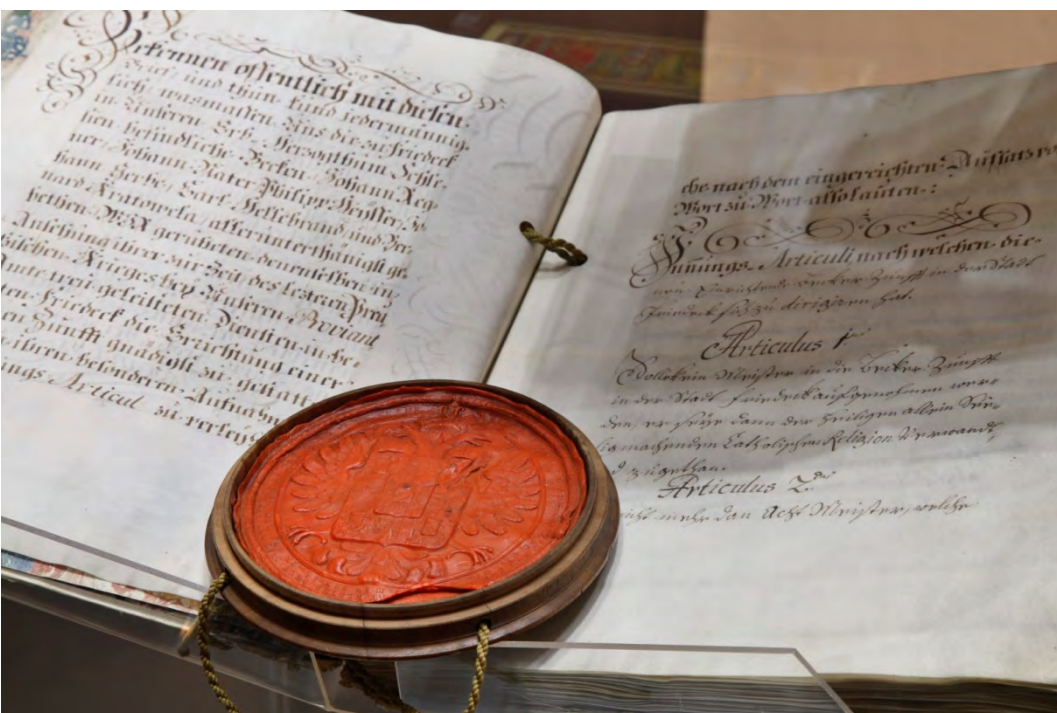 Bekennen offentlich mit diesen
Brief, und thun kund jedermännig-
lich, wasmassen Uns die zu Friedeck
in Unseren Erb-Herzogthum Schle-
sien befindliche Becken Johann Reg-
ner, Johann Kater, Philipp
hann Carl Hellebrand und Ber-
nard allerunterthänigst ge-
bethen, WIR geruheten denenselben in
Ansehung ihrer zur Zeit des lezteren Preü
sischen Krieges bey Unseren Proviant
Amte treu geleisteten Diensten in be-
Friedeck die Errichtung einer
en Zunfft gnädigst zu gestatten
ihren besonderen Aufnahm
ungs Articul zu verleyh
che nach dem eingereichten Auffsatz vo
Wort zu Wort also lauten:
Innungs-Articuli nach welchen die-
neü Einrichtende Becker Zunfft in der Stadt
Friedeck sich zu dirigiren hat.
Articulus 1
Solle kein Meister in die Becker Zunfft
in der Stadt Friedeck aufgenohmen wer-
den, er seÿe dann der Heiligen allein See-
ligmachenden Catholischen Religion Verwandt,
d zugethan.
Articulus 2
nicht mehr dan Acht Meister, welche